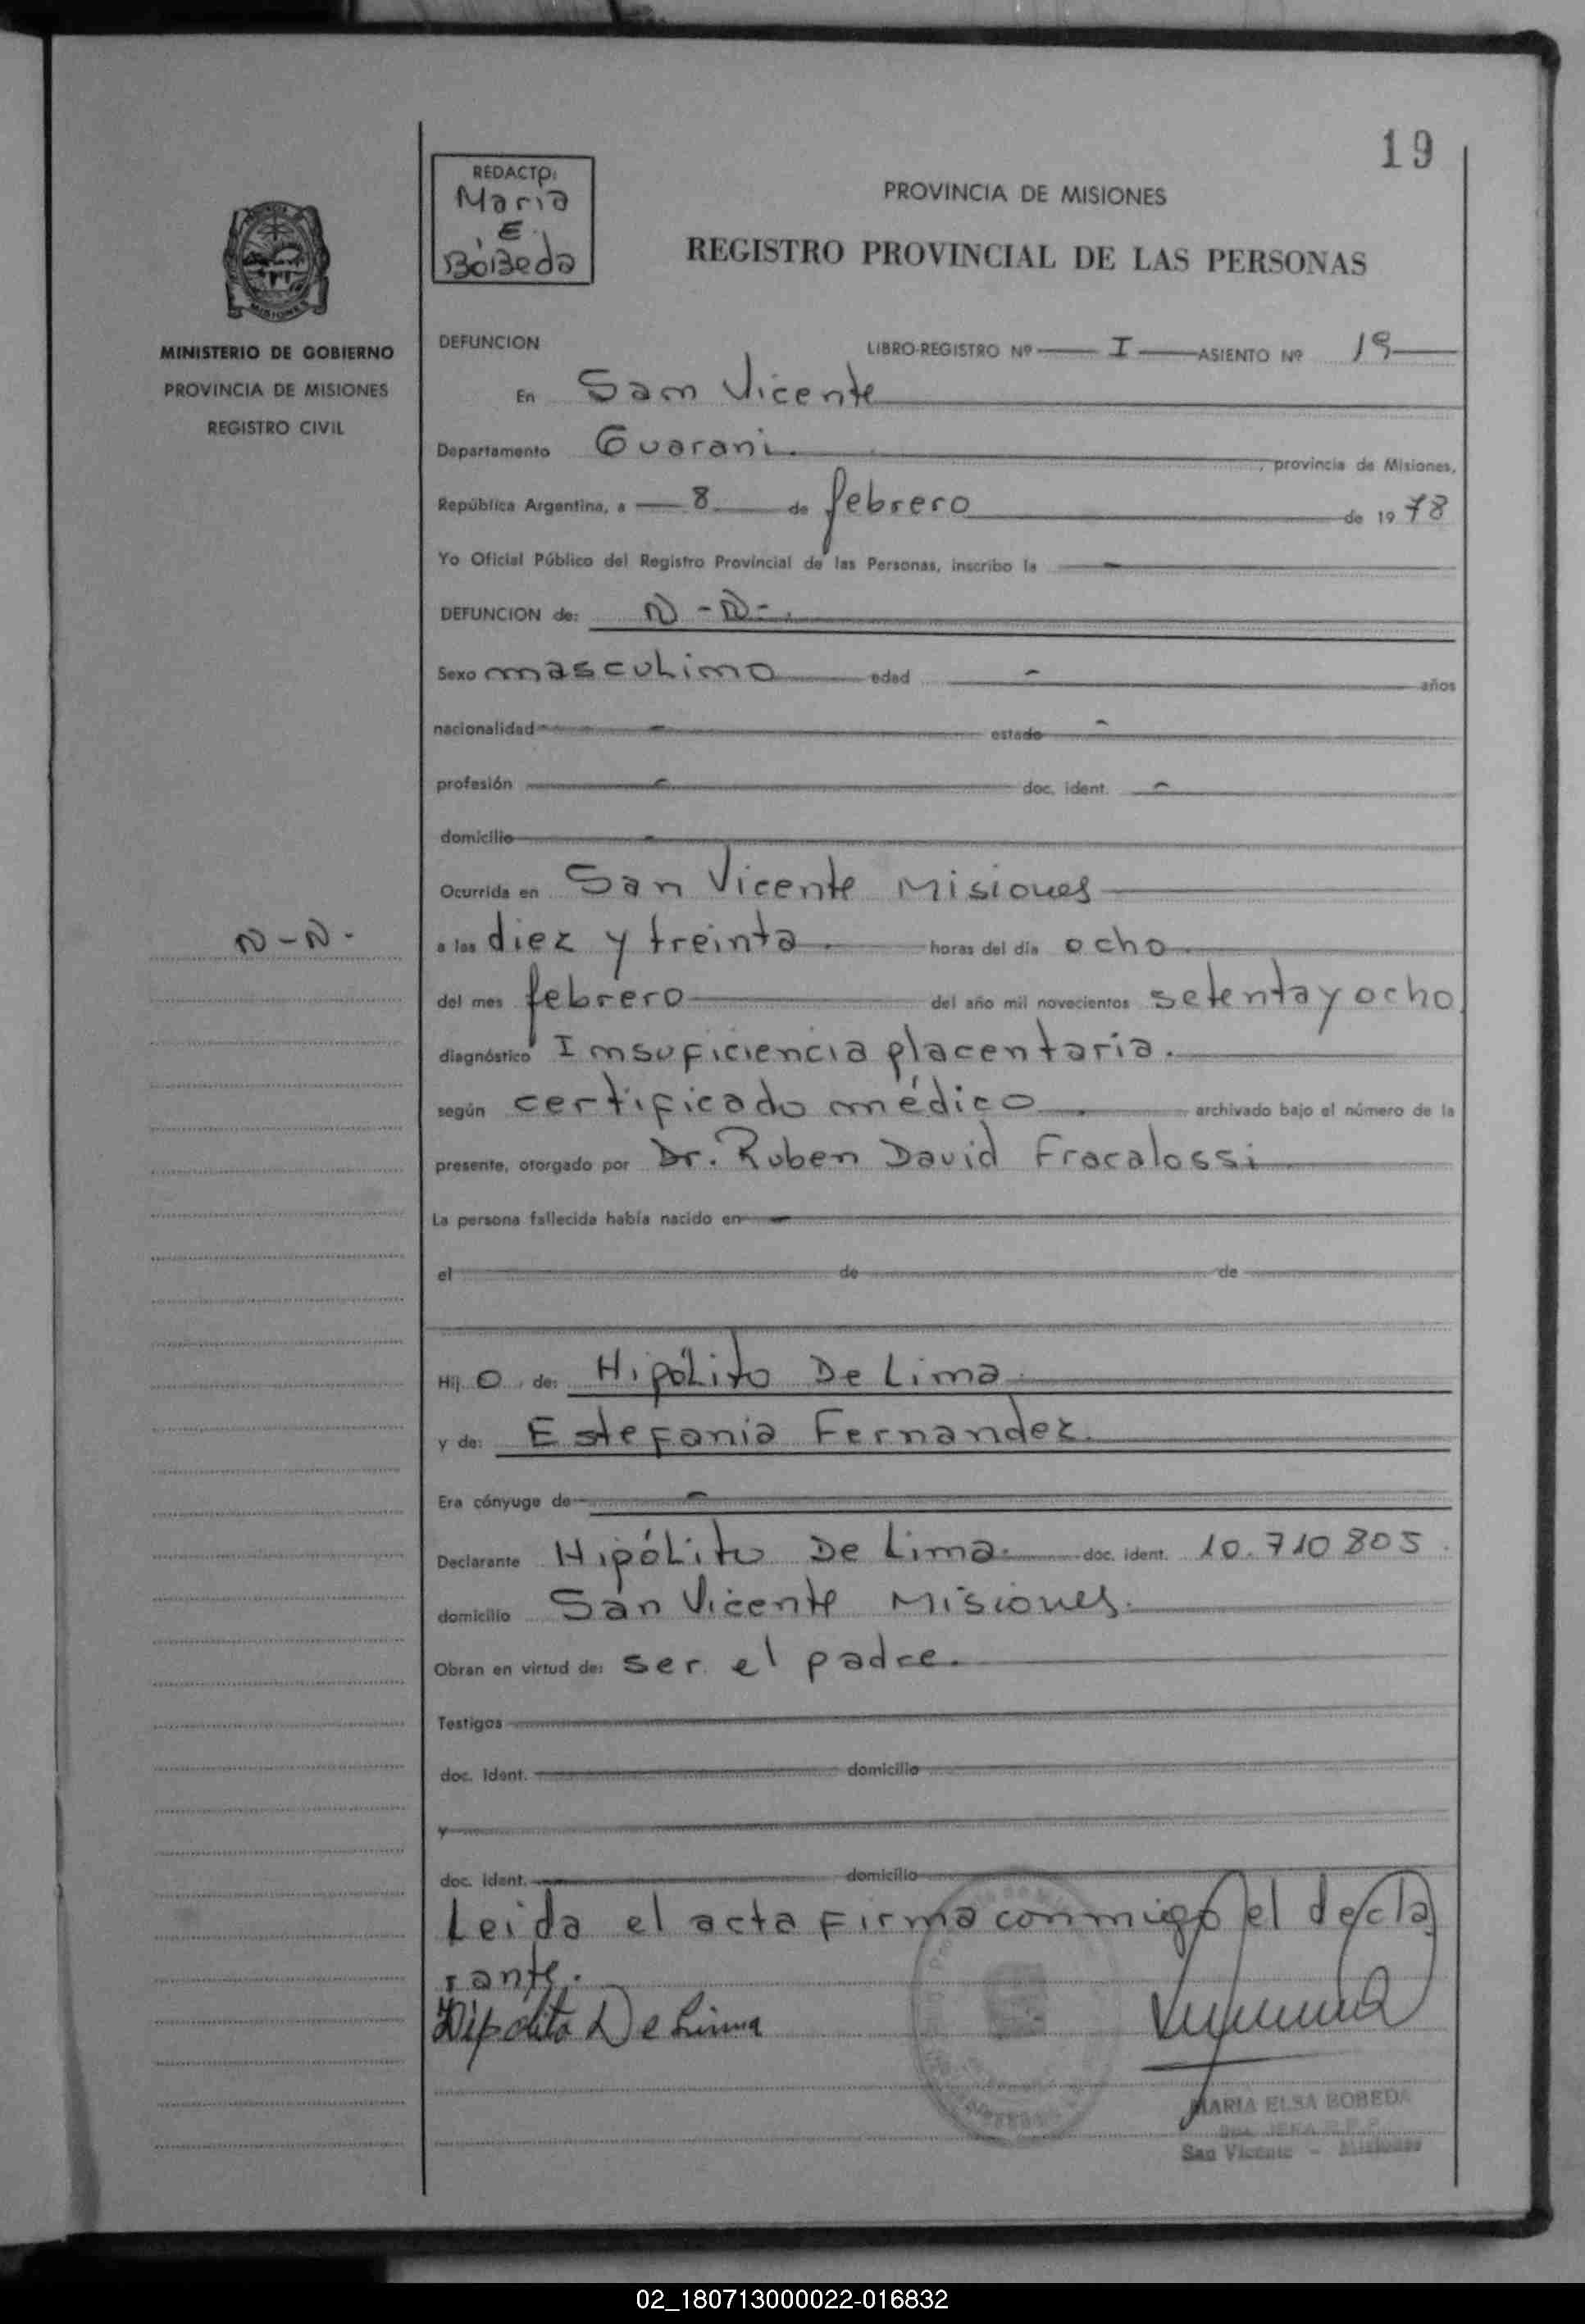 19
REDACTO:
Maria
E.
BoBeda
PROVINCIA DE MISIONES
REGISTRO PROVINCIAL DE LAS PERSONAS
MISIONES
MINISTERIO DE GOBIERNO
PROVINCIA DE MISIONES
REGISTRO CIVIL
DEFUNCION LIBRO-REGISTRO Nº I ASIENTO Nº 19
En San Vicente
Departamento Guarani. , provincia de Misiones,
República Argentina, a 8 de febrero de 1978
Yo Oficial Público del Registro Provincial de las Personas, inscribo la -
DEFUNCION de: N-N-.
Sexo masculino edad - años
nacionalidad - estado -
profesión - doc. ident. -
domicilio -
Ocurrida en San Vicente Misiones
N-N-
a las diez y treinta. horas del día ocho.
del mes febrero del año mil novecientos setenta y ocho.
diagnóstico Imsuficiencia placentaria.
según certificado médico. archivado bajo el número de la
presente, otorgado por Dr. Ruben David Fracalossi
La persona fallecida había nacido en -
el de de
Hijo de: Hipólito De Lima.
y de: Estefania Fernandez.
Era cónyuge de -
Declarante Hipólito De Lima. doc. ident. 10.710805.
domicilio San Vicente Misiones.
Obran en virtud de: ser el padre.
Testigos
doc. ident. domicilio
y
doc. ident. domicilio
Leida el acta firma conmigo el decla
rante.
Hipolito De Lima
MARIA ELSA BOBEDA
San Vicente - Misiones
02_180713000022-016832